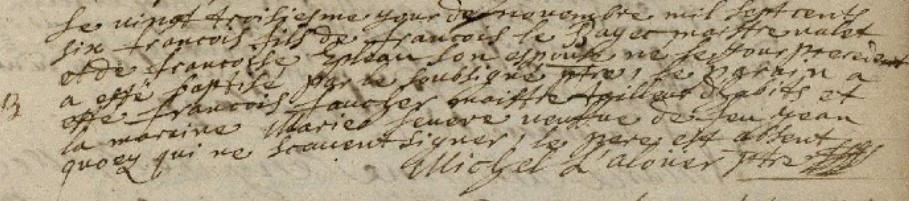 Le vingt troisiesme jour de novembre mil sept cents
six francois fils de francois le maistre valet
et de francoise son espouse ne le jour precedent
a esté baptisé par le soubsigné ptre, le parain a
esté francois faucher maistre tailleur dhabits et
la maraine Marie veufve de feu jean
quoey qui ne scavent signer, le pere est absent
Michel Lalouer ptre